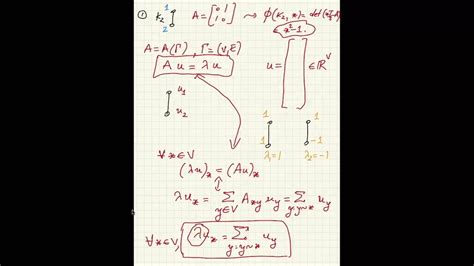 ① K₂ 1 2 A = [0 1; 1 0] → φ(K₂, x) = det(xI-A)
x²-1.
A = A(Γ), Γ = (V, E)
u = [ ] ∈ ℝ^V
A u = λ u
u₁
u₂
1 1
1 -1
λ₁=1 λ₂=-1
∀x∈V
(λu)ₓ = (Au)ₓ
λuₓ = Σ_{y∈V} Aₓᵧ uᵧ = Σ_{y:y~x} uᵧ
∀x∈V, λuₓ = Σ_{y:y~x} uᵧ